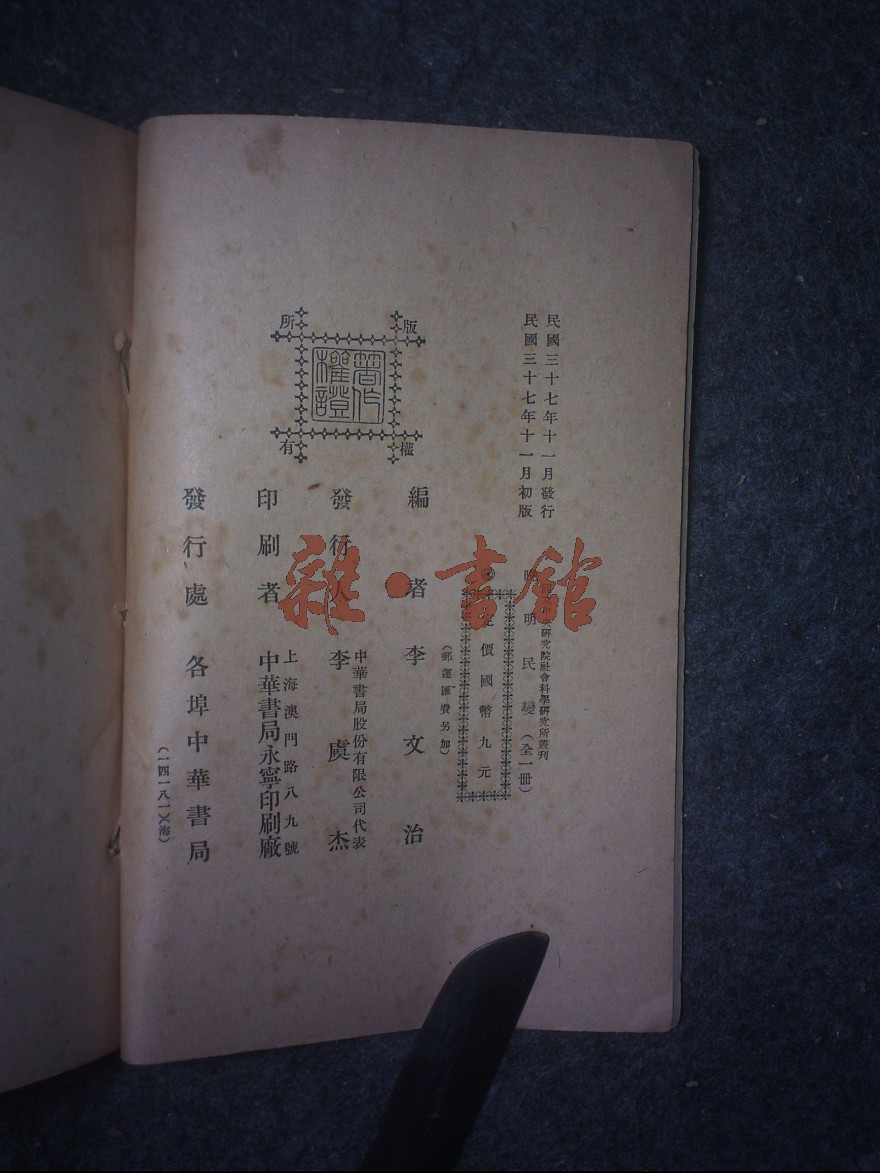 民國三十七年十一月發行
民國三十七年十一月初版
研究院社會科學研究所叢刊
明民變（全一册）
定價國幣九元
（郵運匯費另加）
編者 李文治
發行人 李虞杰
中華書局股份有限公司代表
印刷者 中華書局永寧印刷廠
上海澳門路八九號
發行處 各埠中華書局
（一四一八一）（海）
版權所有
著作權證
雜·書館